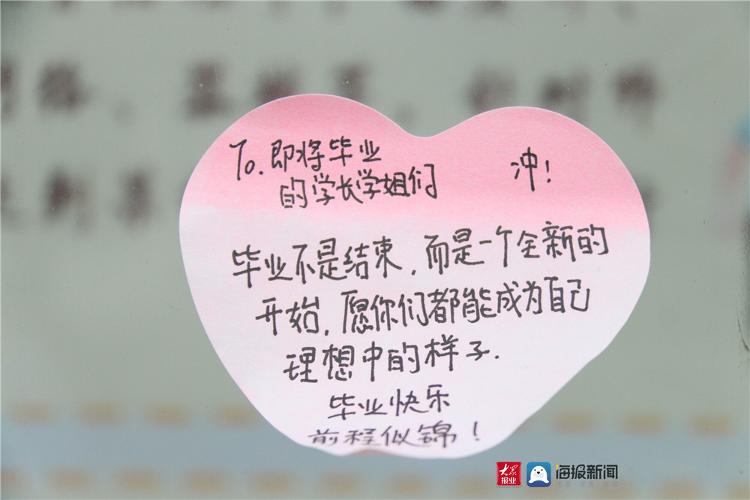 To.即将毕业
的学长学姐们
冲!
毕业不是结束,而是一个全新的
开始,愿你们都能成为自己
理想中的样子.
毕业快乐
前程似锦!
大众报业 海报新闻